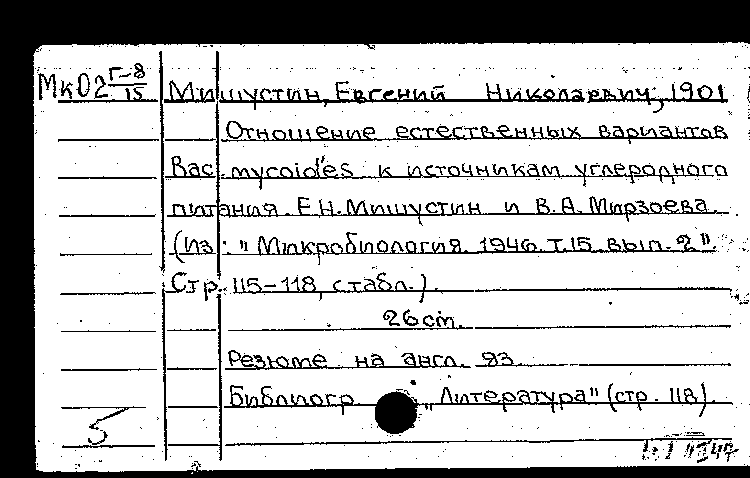 МкО2 Г-8/15 Мишустин, Евгений Николаевич, 1901
Отношение естественных вариантов
Bac. mycoides к источникам углеродного
питания. Е.Н. Мишустин и В.А. Мирзоева.
(Из: "Микробиология. 1946. т.15. вып. 2".
Стр. 115-118, с табл.).
26 cm.
Резюме на англ. яз.
Библиогр. „Литература" (стр. 118).
5